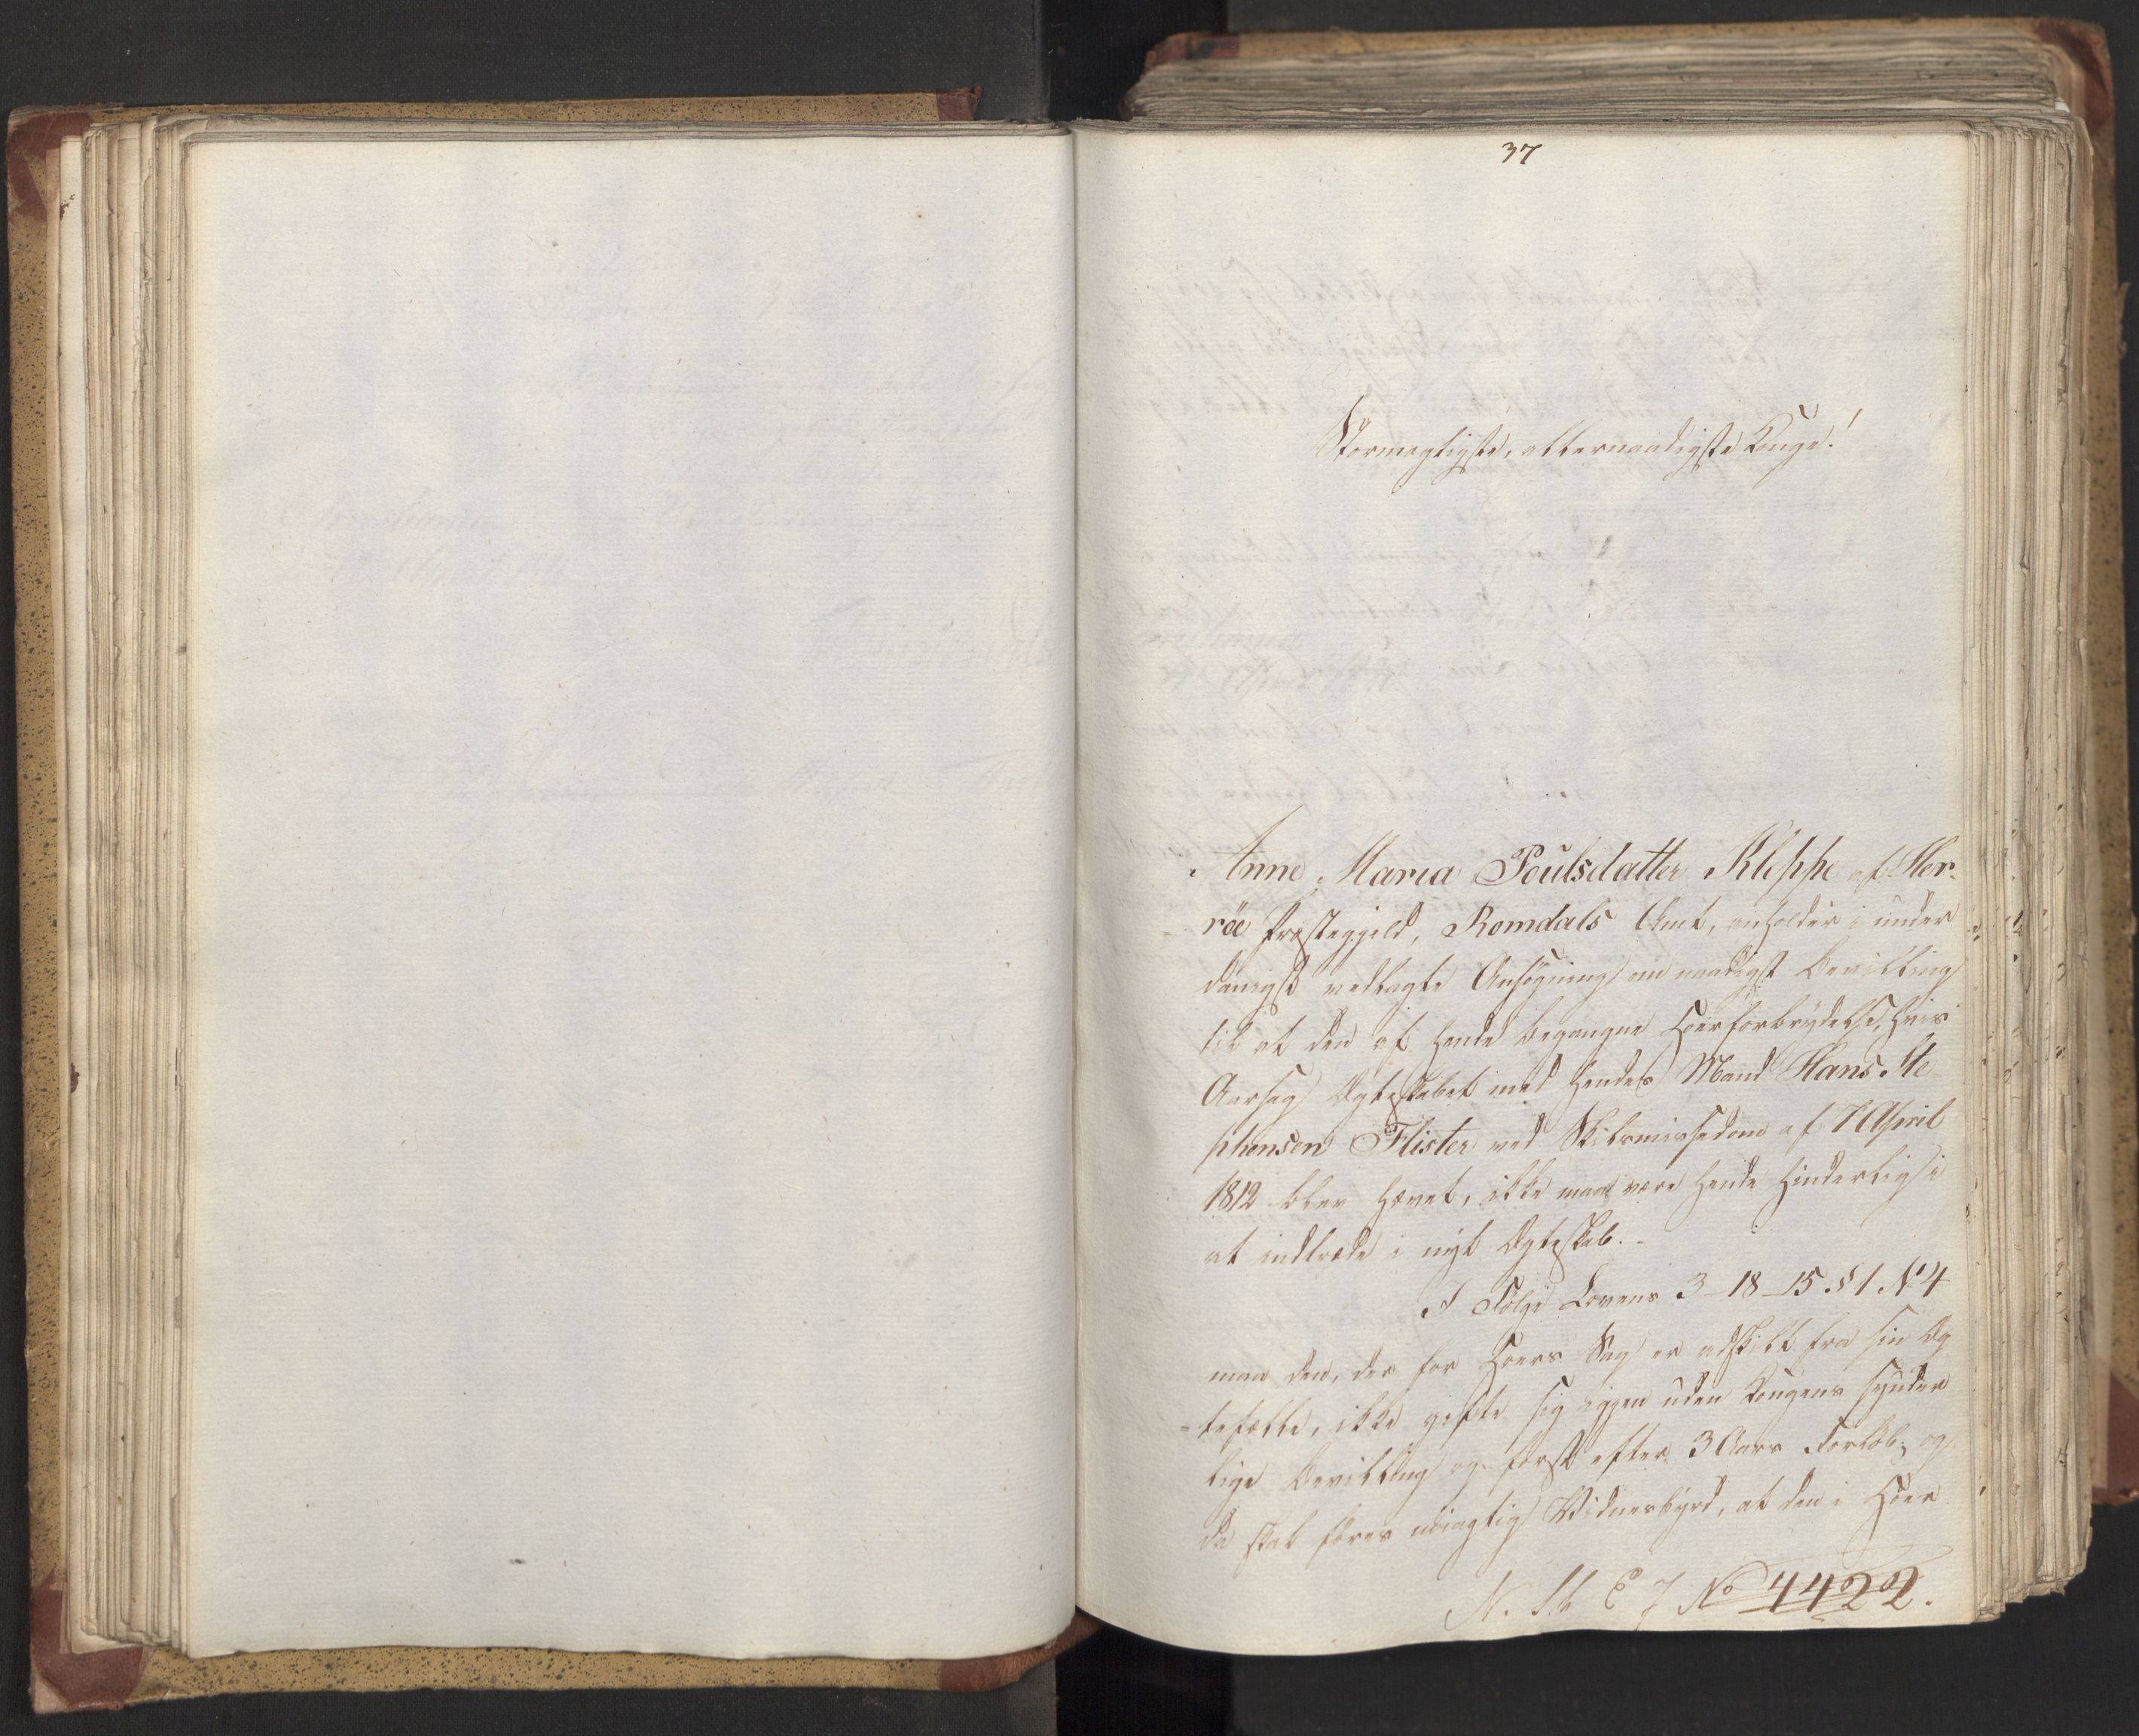 37
Stormægtigste, allernaadigste Konge!
Anne Maria Poulsdatter Kleppe af Her-
röe Præstegjeld, Romdals Amt, anholder i under
danigst vedlagte Ansøgning om naadigst Bevilling
til at den af hende begangne Hoerforbrydelse, hvis
Aarsag Ægteskabet med hendes Mand Hans Ste
phensen Flister ved Skilsmissedom af 7 April
1812 blev hævet, ikke maa være hende hinderlig i
at indtræde i nyt Ægteskab.-
I Følge Lovens 3-18-15 § 1. N° 4
maa den, der for Hoers Sag er adskilt fra sin Æg
tefælle, ikke gifte sig igjen uden Kongens synder
lige Bevilling og først efter 3 Aars Forløb; og
da skal føres nöiagtig Vidnesbyrd, at den i Hoer
N. St. C J No 4422.